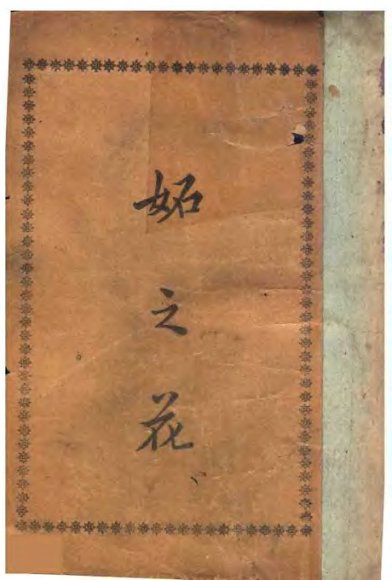 妬之花